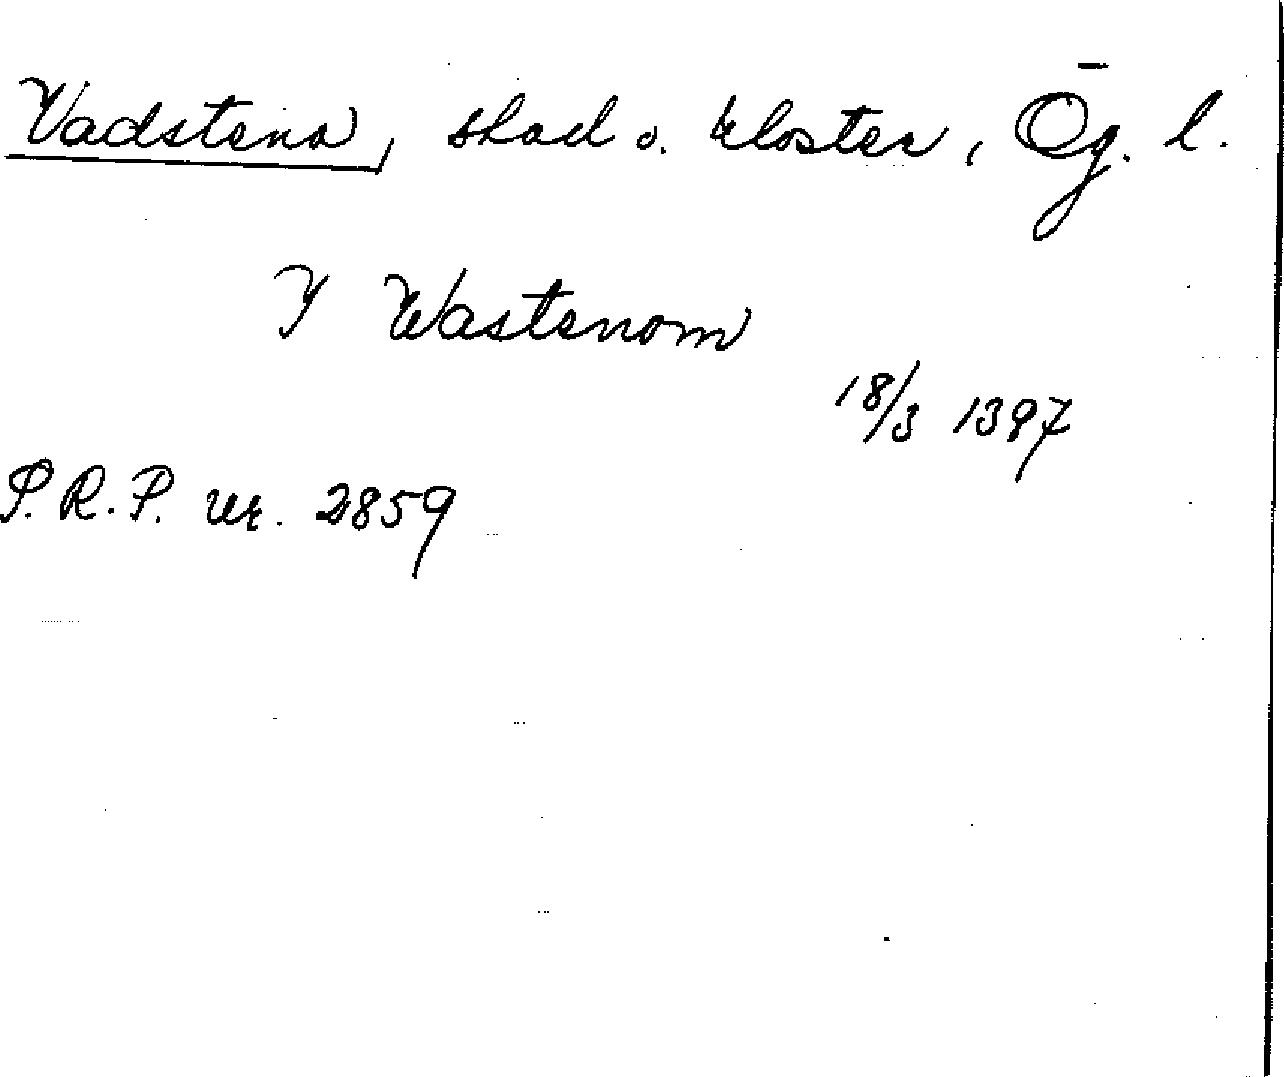 Vadstena, stad o. kloster, Ög. l.
Y Wastenom
18/3 1397
S.R.P. nr. 2859